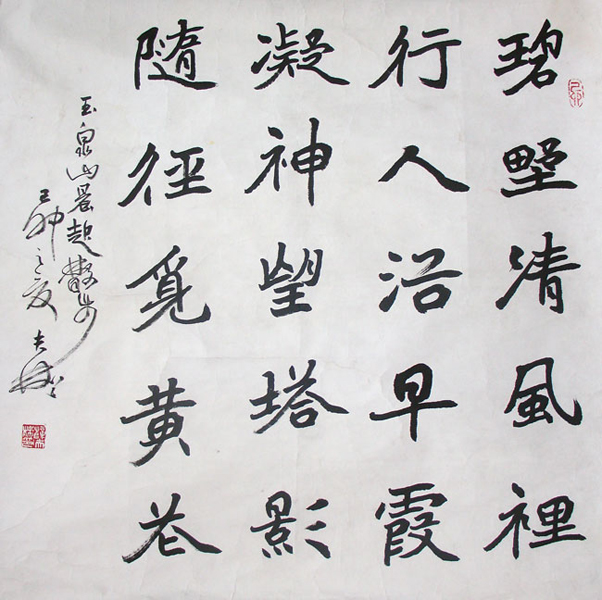 碧墅清風裡
行人沿早霞
凝神望塔影
隨徑覓黃花
玉泉山晨起散步
己卯之夏